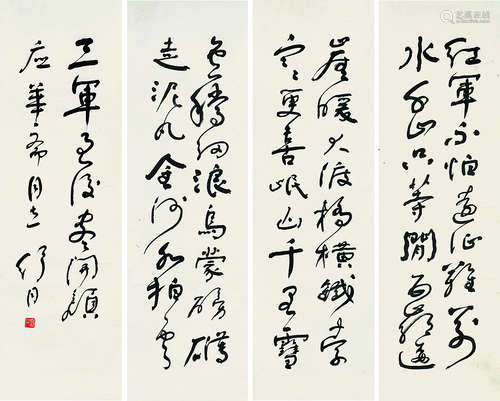 红軍不怕遠征難萬
水千山只等閑五嶺逶
崖暖大渡橋橫鐵索
寒更喜岷山千里雪
迤騰細浪烏蒙磅礴
走泥丸金沙水拍雲
三軍過後盡開顏
应華斋同志 舒同